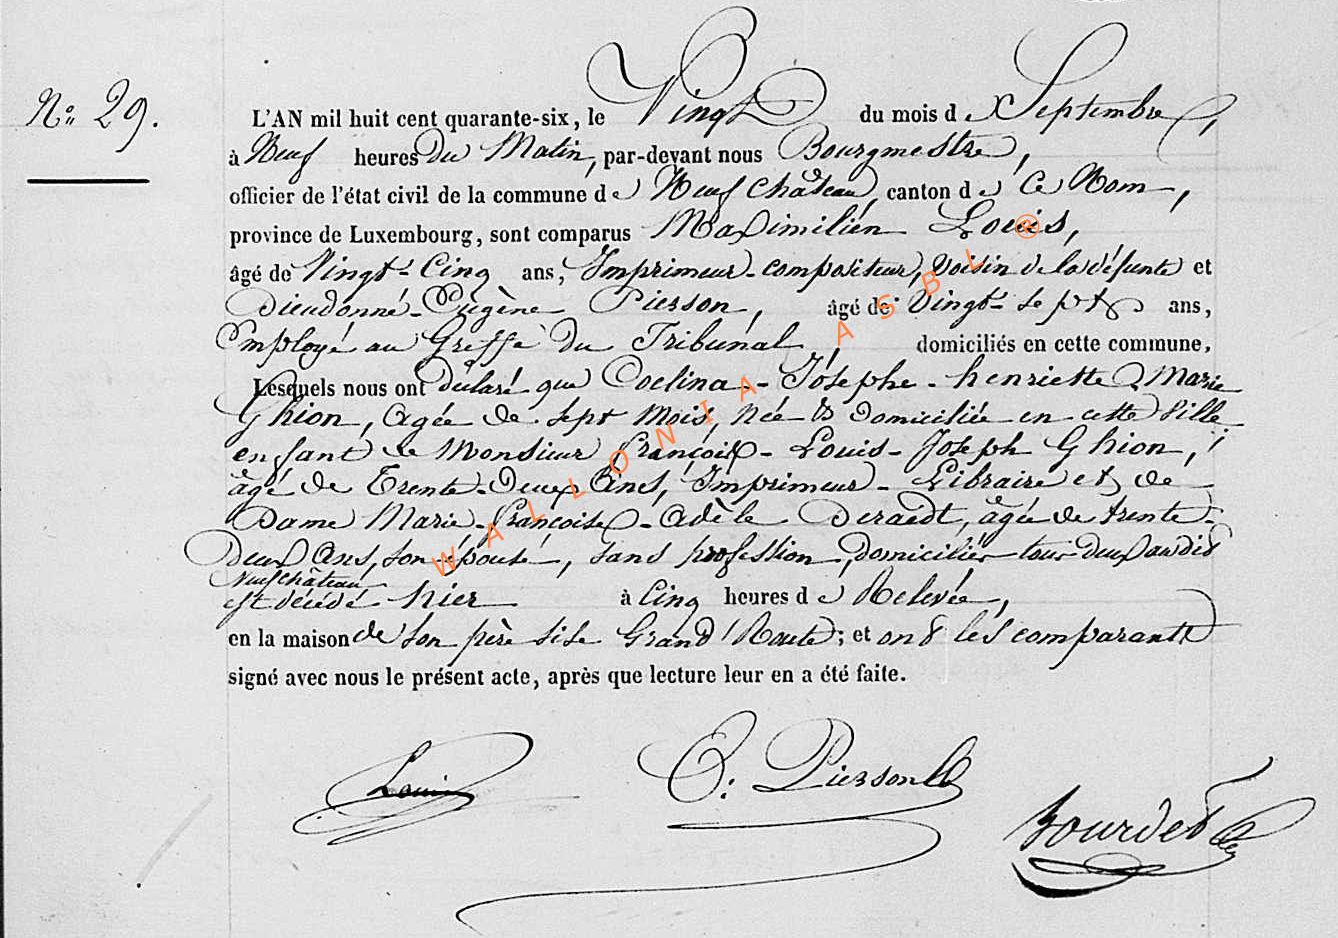 N.º 29.
L'AN mil huit cent quarante-six, le Vingt du mois de Septembre,
à Neuf heures du Matin, par-devant nous Bourgmestre,
officier de l'état civil de la commune de Neufchâteau, canton de Ce Nom,
province de Luxembourg, sont comparus Maximilien Louis,
âgé de Vingt-Cinq ans, Imprimeur-compositeur, voisin de la défunte et
Dieudonné-Eugène Pierson, âgé de Vingt-sept ans,
Employé au Greffe du Tribunal, domiciliés en cette commune,
Lesquels nous ont déclaré que Coelina-Josephe-henriette Marie
Ghion, Agée de sept mois, née & domiciliée en cette Ville
enfant de Monsieur François-Louis-Joseph Ghion,
âgé de Trente-Deux Ans, Imprimeur-Libraire et de
Dame Marie-Françoise-Adèle Deraedt, âgée de trente-
Deux Ans, son épouse, sans profession, domiciliés tous deux audit
Neufchâteau
est décédé hier à Cinq heures de Relevée,
en la maison de son père sise Grand'Route; et ont les comparants
signé avec nous le présent acte, après que lecture leur en a été faite.
Louis
E. Pierson
Bourdet
WALLONIA ASBL ®